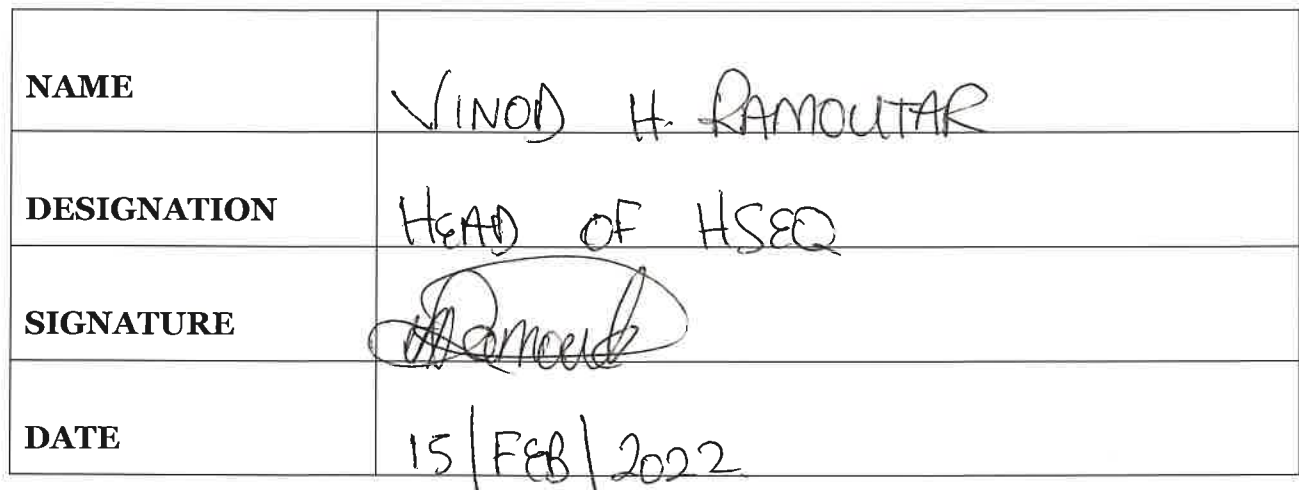 NAME VINOD H. RAMOUTAR
DESIGNATION HEAD OF HSEQ
SIGNATURE
DATE 15/FEB/2022